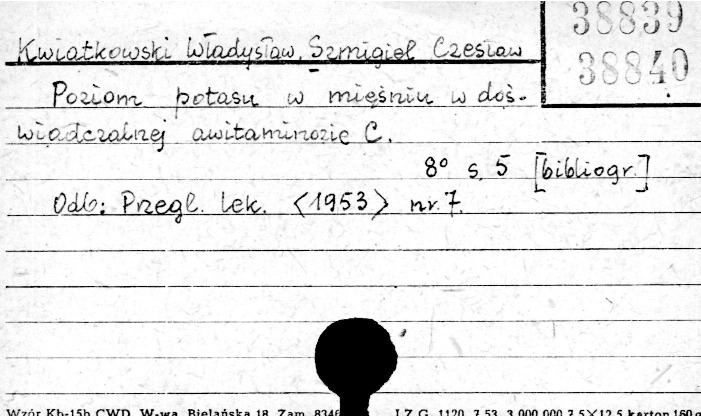 38839
38840
Kwiatkowski Władysław, Szmigiel Czesław
Poziom potasu w mięśniu w doś-
wiadczalnej awitaminozie C.
8° s. 5 [bibliogr.]
Odb: Przegl. lek. <1953> nr. 7.
Wzór Kb-15b CWD, W-wa, Bielańska 18. Zam. 8346 I.Z.G. 1120 7.53 3.000.000 7,5×12,5 karton 160 g